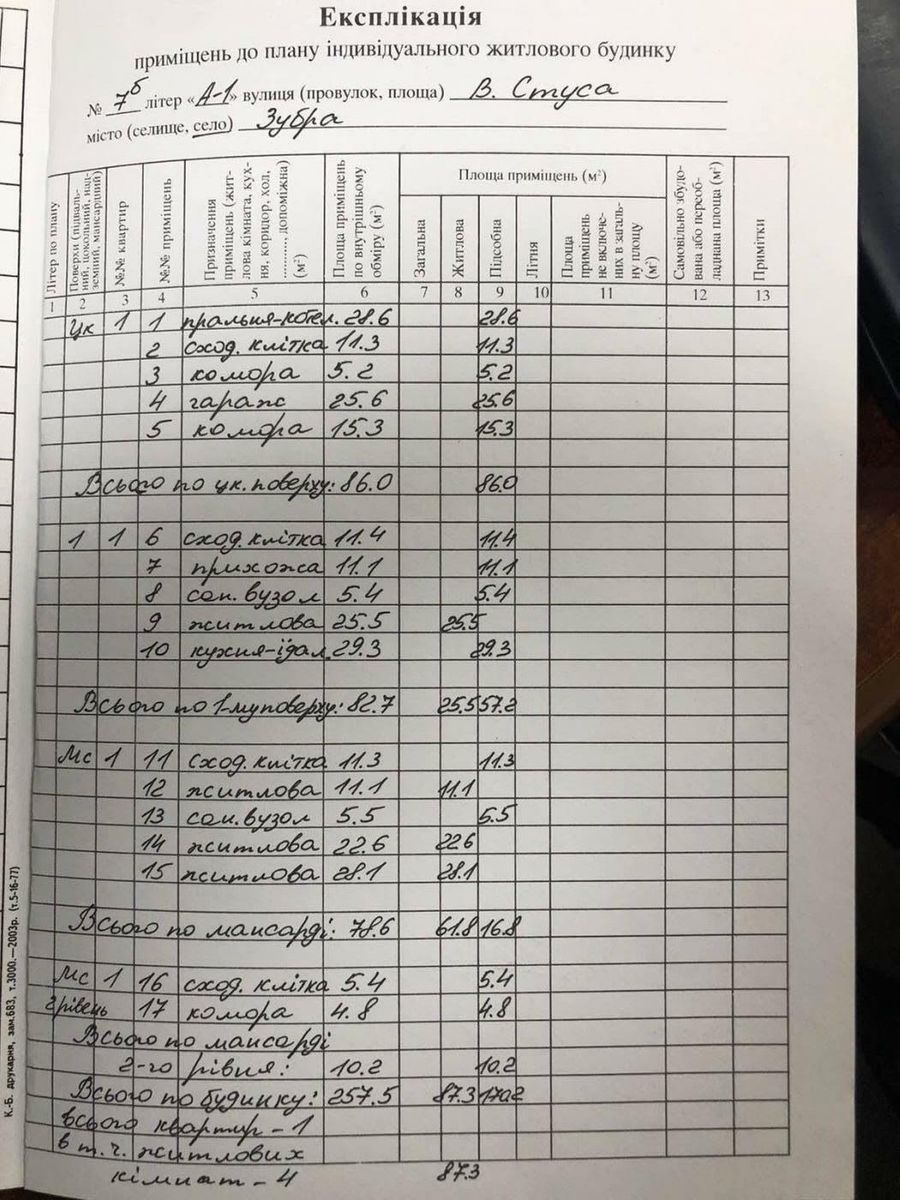 Експлікація
приміщень до плану індивідуального житлового будинку
№ 7б літер «А-1» вулиця (провулок, площа) В. Стуса
місто (селище, село) Зубра
Літер по плану
Поверхи (підвальний, цокольний, надземний, мансардний)
№№ квартир
№№ приміщень
Призначення приміщень (житлова кімната, кухня, коридор, хол, ............, допоміжна) (м²)
Площа приміщень по внутрішньому обміру (м²)
Площа приміщень (м²)
Загальна
Житлова
Підсобна
Літня
Площа приміщень не включених в загальну площу (м²)
Самовільно збудована або переобладнана площа (м²)
Примітки
1 2 3 4 5 6 7 8 9 10 11 12 13
Цк 1 1 пральня-котел. 28.6 28.6
2 сход. клітка 11.3 11.3
3 комора 5.2 5.2
4 гараж 25.6 25.6
5 комора 15.3 15.3
Всього по цк. поверху: 86.0 86.0
1 1 6 сход. клітка 11.4 11.4
7 прихожа 11.1 11.1
8 сан. вузол 5.4 5.4
9 житлова 25.5 25.5
10 кухня-їдал. 29.3 29.3
Всього по 1-му поверху: 82.7 25.5 57.2
Мс 1 11 сход. клітка 11.3 11.3
12 житлова 11.1 11.1
13 сан. вузол 5.5 5.5
14 житлова 22.6 22.6
15 житлова 28.1 28.1
Всього по мансарді: 78.6 61.8 16.8
Мс 1 16 сход. клітка 5.4 5.4
2 рівень 17 комора 4.8 4.8
Всього по мансарді
2-го рівня: 10.2 10.2
Всього по будинку: 257.5 87.3 170.2
всього квартир - 1
в т.ч. житлових
кімнат - 4 87.3
К.-Б. друкарня, зам.683, т.3000.—2003р. (т.5-16-77)